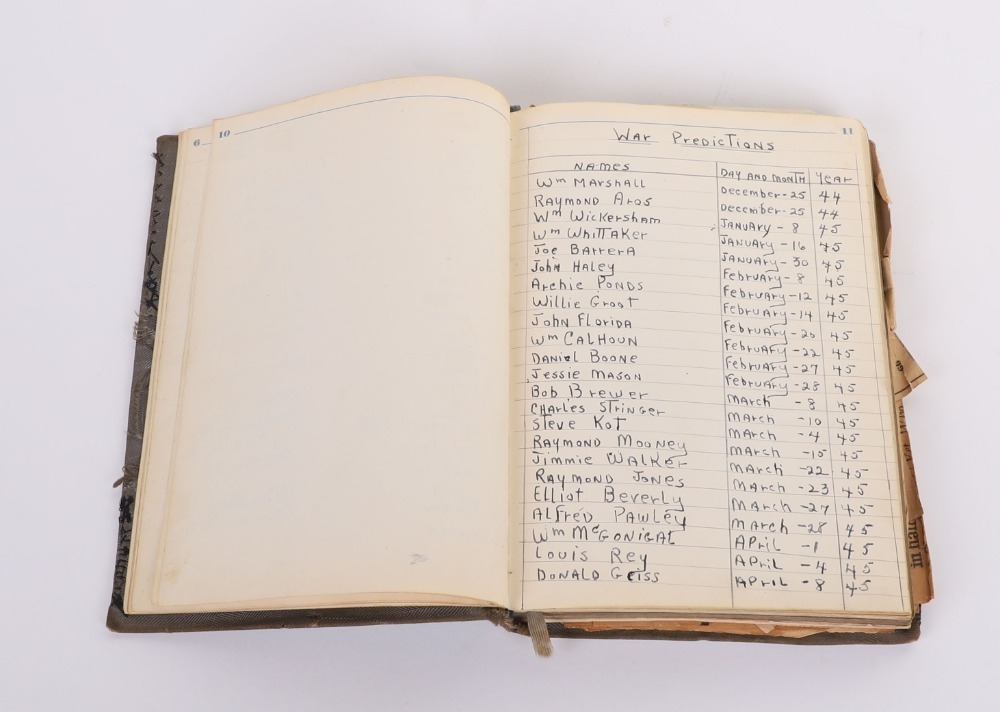 6
10
11
War Predictions
Names Day and Month Year
Wm Marshall December - 25 44
Raymond Aros December - 25 44
Wm Wickersham January - 8 45
Wm Whittaker January - 16 45
Joe Barrera January - 30 45
John Haley February - 8 45
Archie Ponds February - 12 45
Willie Groot February - 14 45
John Florida February - 20 45
Wm Calhoun February - 22 45
Daniel Boone February - 27 45
Jessie Mason February - 28 45
Bob Brewer March - 8 45
Charles Stringer March - 10 45
Steve Kot March - 4 45
Raymond Mooney March - 15 45
Jimmie Walker March - 22 45
Raymond Jones March - 23 45
Elliot Beverly March - 27 45
Alfred Pawley March - 28 45
Wm McGonigal April - 1 45
Louis Rey April - 4 45
Donald Geiss April - 8 45